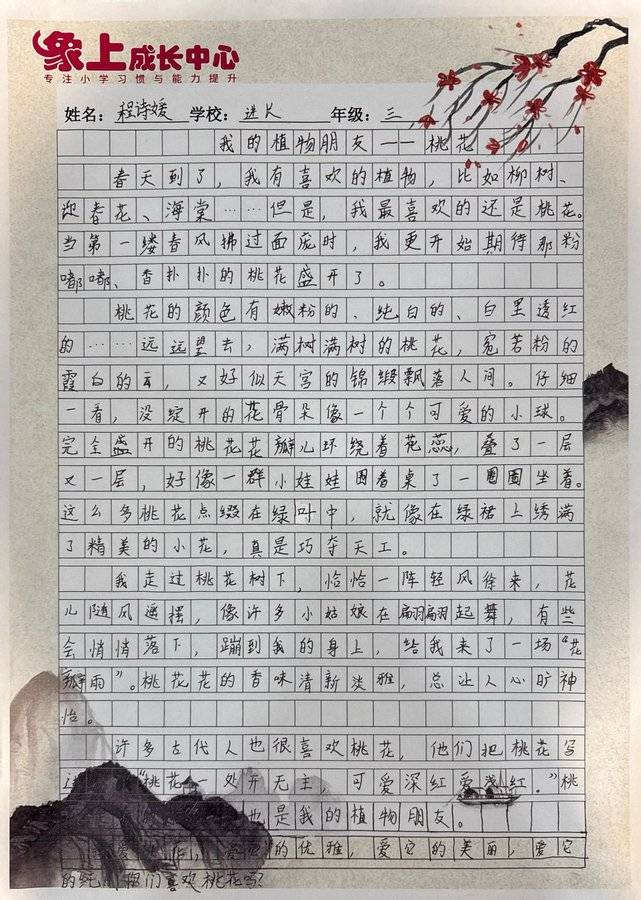 象上成长中心
专注小学习惯与能力提升
姓名：程诗媛 学校： 年级：三
我的植物朋友——桃花
春天到了，我有喜欢的植物，比如柳树、
迎春花、海棠……但是，我最喜欢的还是桃花。
当第一缕春风拂过面庞时，我更开始期待那粉
嘟嘟、香扑扑的桃花盛开了。
桃花的颜色有嫩粉的、纯白的、白里透红
的……远远望去，满树满树的桃花，宛若粉的
霞白的云，又好似天宫的锦缎飘落人间。仔细
一看，没绽开的花骨朵像一个个可爱的小球。
完全盛开的桃花花瓣儿环绕着花蕊，叠了一层
又一层，好像一群小娃娃围着桌了一圈圈坐着。
这么多桃花点缀在绿叶中，就像在绿裙上绣满
了精美的小花，真是巧夺天工。
我走过桃花树下，恰恰一阵轻风徐来，花
儿随风遥摆，像许多小姑娘在翩翩起舞，有些
会悄悄落下，蹦到我的身上，给我来了一场“花
瓣雨”。桃花花的香味清新淡雅，总让人心旷神
怡。
许多古代人也很喜欢桃花，他们把桃花写
“桃花一处开无主，可爱深红爱浅红。”桃
也是我的植物朋友。
的优雅，爱它的美丽，爱它
的纯 你们喜欢桃花吗？